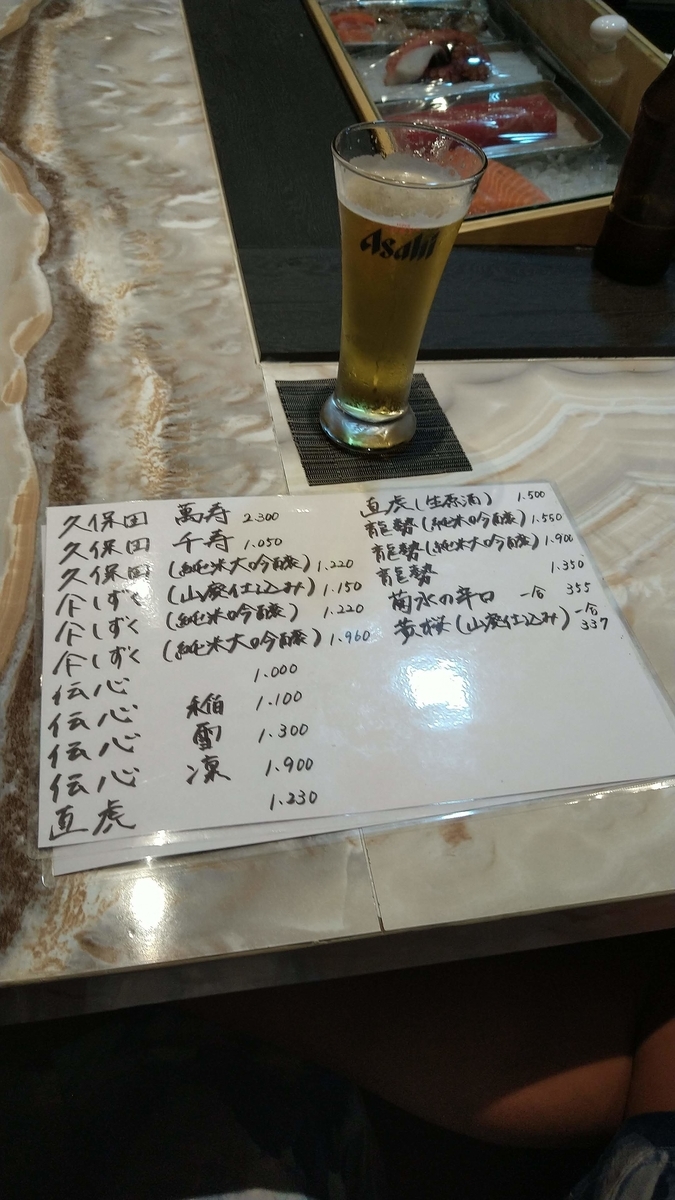 Asahi
久保田 萬寿 2.300
久保田 千寿 1.050
久保田 (純米大吟醸) 1.220
しずく (山廃仕込み) 1.150
しずく (純米吟醸) 1.220
しずく (純米大吟醸) 1.960
伝心 1.000
伝心 稲 1.100
伝心 雪 1.300
伝心 凛 1.900
直虎 1.230
直虎 (生原酒) 1.500
龍勢 (純米吟醸) 1.550
龍勢 (純米大吟醸) 1.900
龍勢 1.350
菊水の辛口 一合 355
黄桜 (山廃仕込み) 一合 337